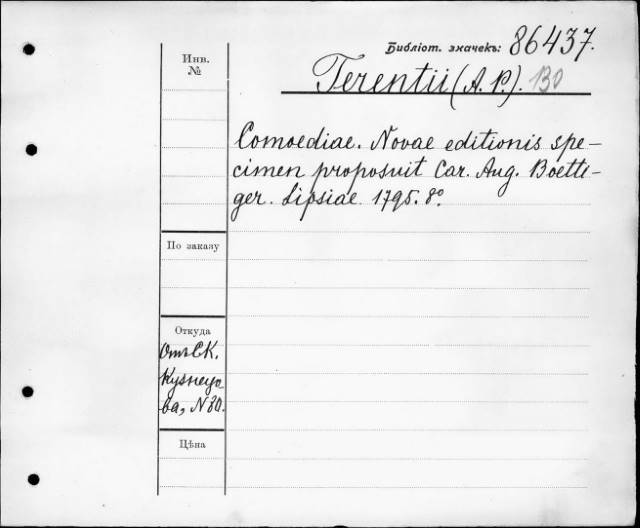 Библіот. значекъ: 86437.
Инв. №
Terentii (A. P.). 130
Comoediae. Novae editionis spe-
cimen proposuit Car. Aug. Boetti-
ger. Lipsiae 1795. 8°.
По заказу
Откуда
Отъ СК.
Кузнецо-
ва, N 30.
Цѣна